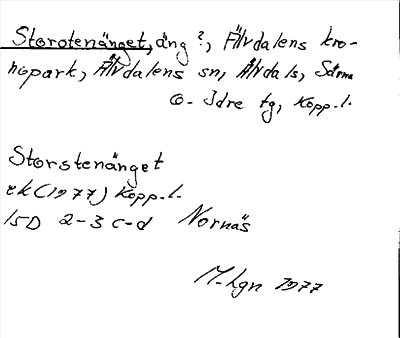 Storotenänget, äng?, Älvdalens kro-
nopark, Älvdalens sn, Älvdals, Särna
o. Idre tg, Kopp. l.
Storstenänget
ek (1977) Kopp. l.
15D 2-3 c-d Nornäs
M-lgn 1977